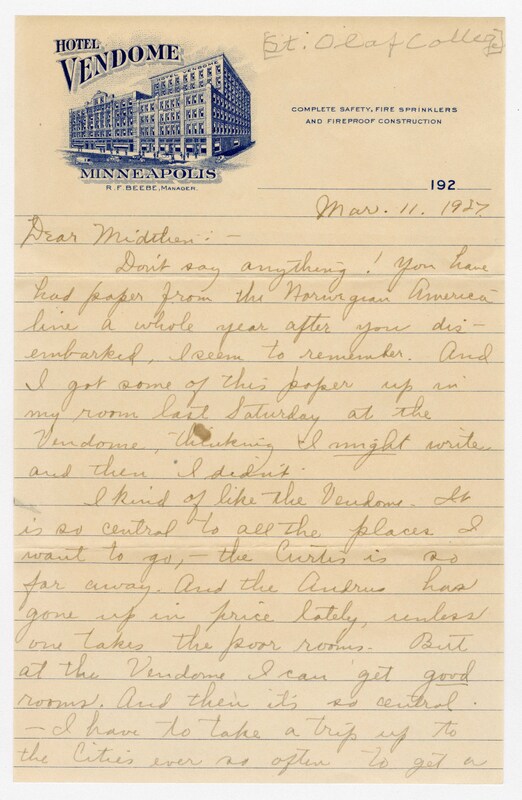 [St. Olaf College]
HOTEL
VENDOME
HOTEL VENDOME
MINNEAPOLIS
R. F. BEEBE, MANAGER.
COMPLETE SAFETY, FIRE SPRINKLERS
AND FIREPROOF CONSTRUCTION
192
Mar. 11. 1927
Dear Midthen: -
Don't say anything! You have
had paper from the Norwegian America
line a whole year after you dis-
embarked, I seem to remember. And
I got some of this paper up in
my room last Saturday at the
Vendome, thinking I might write
and then I didn't.
I kind of like the Vendome. It
is so central to all the places I
want to go, - the Curtis is so
far away. And the Andrus has
gone up in price lately, unless
one takes the poor rooms. But
at the Vendome I can get good
rooms. And then it's so central.
- I have to take a trip up to
the Cities ever so often to get a